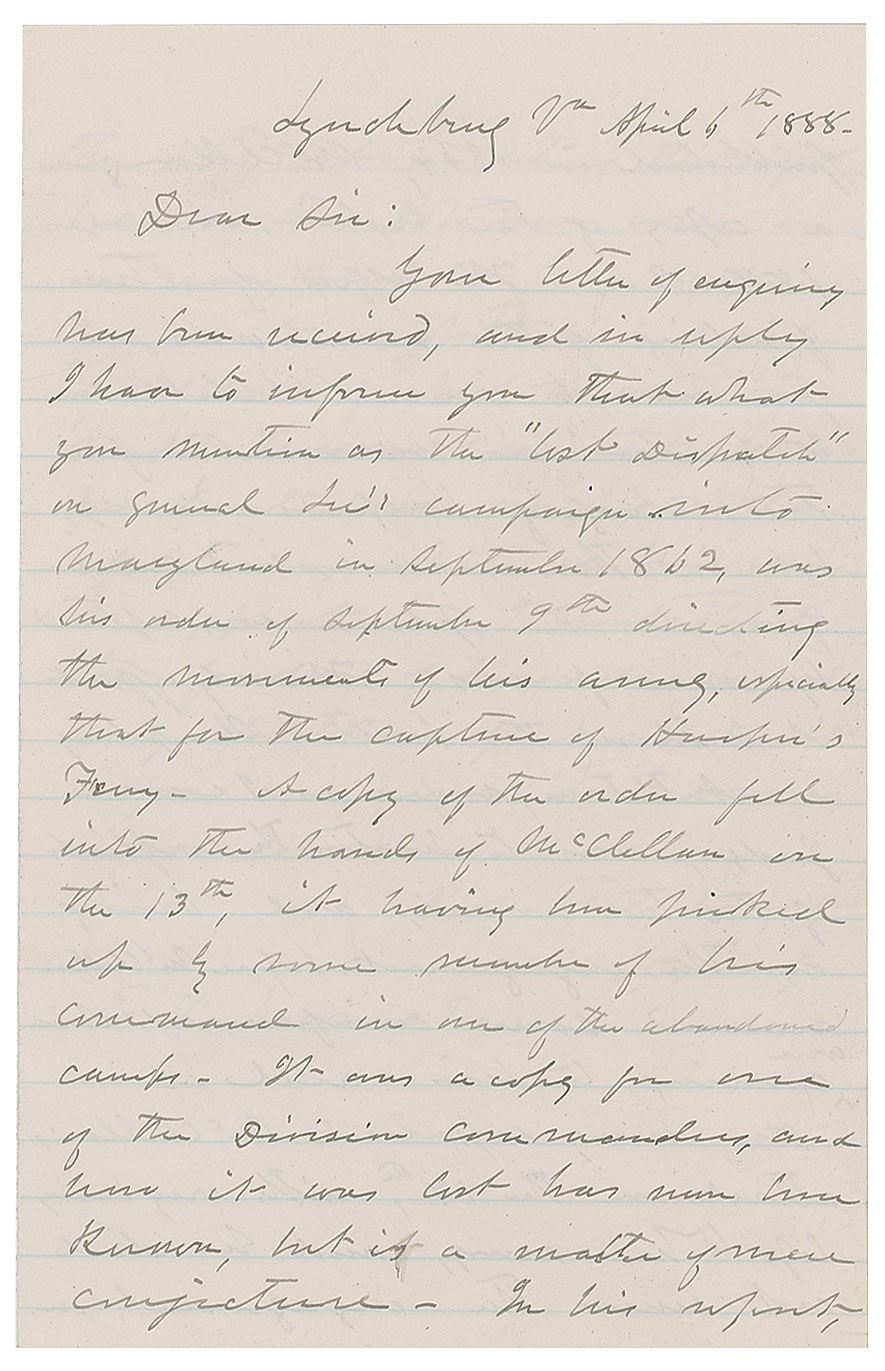 Lynchburg Va April 6th 1888-
Dear Sir:
Your letter of enquiry
has been received, and in reply
I have to inform you that what
you mention as the "lost Dispatch"
on General Lee's campaign into
Maryland in September 1862, was
his order of September 9th directing
the movements of his army, especially
that for the capture of Harper's
Ferry- A copy of the order fell
into the hands of McClellan on
the 13th, it having been picked
up by some member of his
command in one of the abandoned
camps- It was a copy for one
of the Division Commanders, and
how it was lost has never been
known, but is a matter of mere
conjecture- In his report,